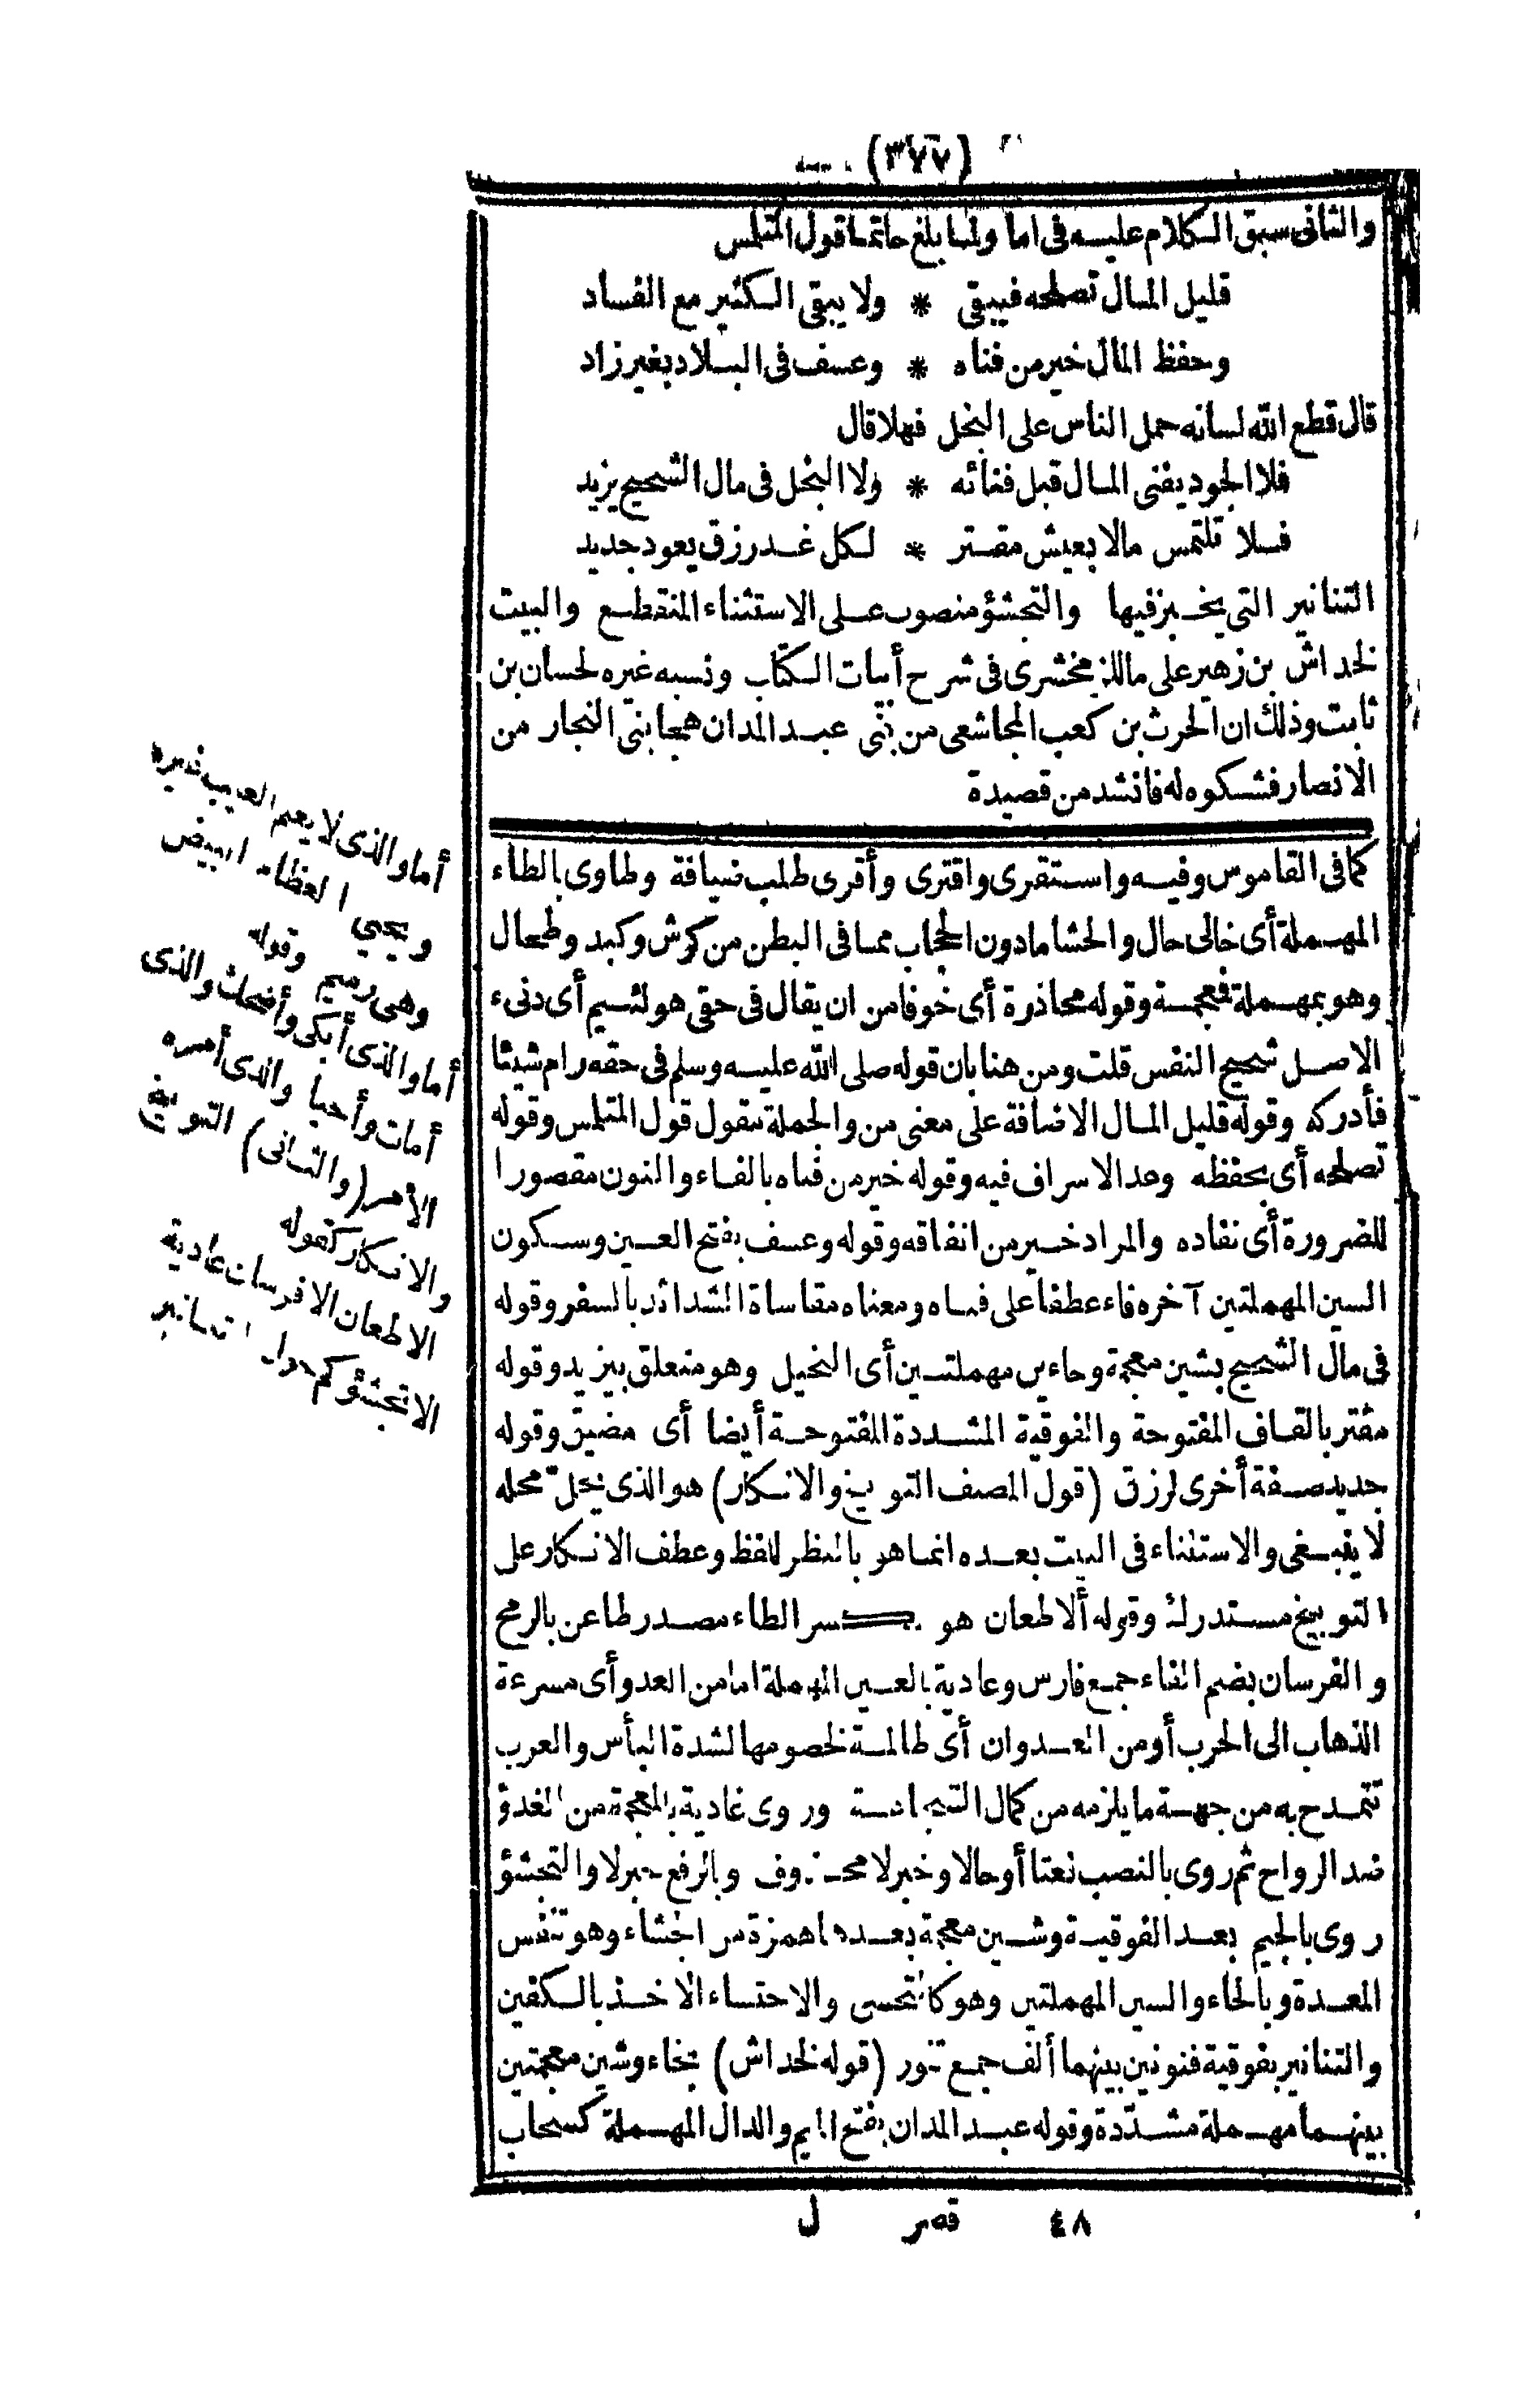 (٣٧٧)
والثانى سبق الكلام عليه فى اما ولما بلغ حاتما قول المتلمس
قليل المال تصلحه فيبقى * ولا يبقى الكثير مع الفساد
وحفظ المال خير من فناه * وعسف فى البلاد بغير زاد
قال قطع الله لسانه حمل الناس على البخل فهلا قال
فلا الجود يفنى المال قبل فنائه * ولا البخل فى مال الشحيح يزيد
فلا تلتمس مالا بعيش مقتر * لكل غد رزق يعود جديد
التنانير التى يخبز فيها والتجشؤ منصوب على الاستثناء المنقطع والبيت
لخداش بن زهير على ما للزمخشرى فى شرح أبيات الكتاب ونسبه غيره لحسان بن
ثابت وذلك ان الحرث بن كعب المجاشعى من بنى عبد المدان هجا بنى النجار من
الانصار فشكوه له فانشد من قصيدة
أما والذى لا يعلم الغيب غيره
ويحيى العظام البيض
وهى رميم وقوله
أما والذى أبكى وأضحك والذى
أمات وأحيا والذى أمره
الأمر (والثانى) التوبيخ
والانكار كقوله
الاطعان الا فرسان عادية
الا تجشؤكم حول التنانير
كما فى القاموس وفيه واستقرى واقترى وأقرى طلب ضيافة وطاوى بالطاء
المهملة أى خالى حال والحشا ما دون الحجاب مما فى البطن من كرش وكبد وطحال
وهو بمهملة فمعجمة وقوله محاذرة أى خوفا من ان يقال فى حقى هو لئيم أى دنىء
الاصل شحيح النفس قلت ومن هنا بان قوله صلى الله عليه وسلم فى حقه رام شيئا
فأدركه وقوله قليل المال الاضافة على معنى من والجملة مقول قول المتلمس وقوله
تصلحه أى تحفظه وعد الاسراف فيه وقوله خير من فناه بالفاء والنون مقصورا
للضرورة أى نفاده والمراد خير من انفاقه وقوله وعسف بفتح العين وسكون
السين المهملتين آخره فاء عطفا على فناه ومعناه مقاساة الشدائد بالسفر وقوله
فى مال الشحيح بشين معجمة وحاءين مهملتين أى البخيل وهو متعلق بيزيد وقوله
مقتر بالقاف المفتوحة والفوقية المشددة المفتوحة أيضا أى مضيق وقوله
جديد صفة أخرى لرزق (قول المصنف التوبيخ والانكار) هو الذى يحل محله
لا ينبغى والاستثناء فى البيت بعده انما هو بالنظر للفظ وعطف الانكار على
التوبيخ مستدرك وقوله ألا طعان هو بكسر الطاء مصدر طاعن بالرمح
والفرسان بضم الفاء جمع فارس وعادية بالعين المهملة اما من العدو أى مسرعة
الذهاب الى الحرب أو من العدوان أى ظالمة لخصومها لشدة البأس والعرب
تتمدح به من جهة ما يلزمه من كمال الشجاعة وروى غادية بالمعجمة من الغدوّ
ضد الرواح ثم روى بالنصب نعتا أو حالا وخبر لا محذوف وبالرفع خبر لا والتجشؤ
روى بالجيم بعد الفوقية وشين معجمة بعدها همزة من الجشاء وهو تنفس
المعدة وبالحاء والسين المهملتين وهو كالتحسى والاحتساء الاخذ بالكفين
والتنانير بفوقية فنونين بينهما ألف جمع تنور (قوله لخداش) بخاء وشين معجمتين
بينهما مهملة مشدّدة وقوله عبد المدان بفتح الميم والدال المهملة كسحاب
٤٨ قصر ل